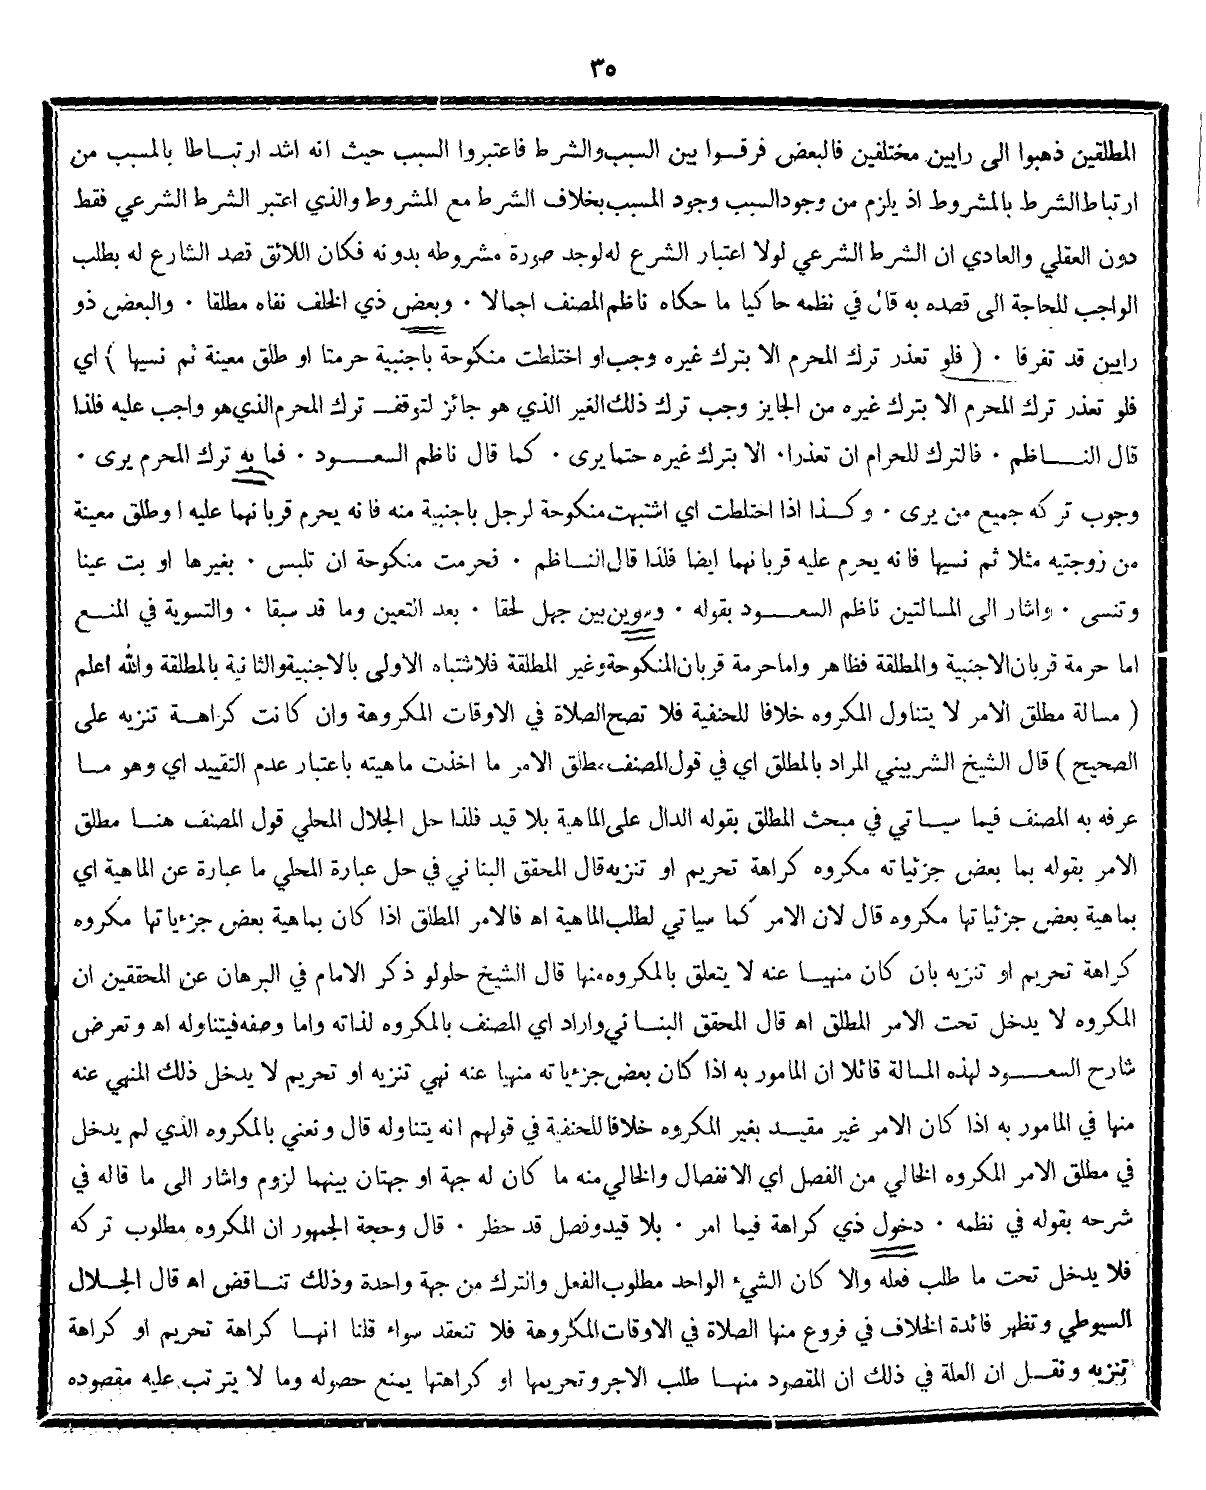 ٣٥
المطلقين ذهبوا الى رايين مختلفين فالبعض فرقوا بين السبب والشرط فاعتبروا السبب حيث انه اشد ارتباطا بالمسبب من
ارتباط الشرط بالمشروط اذ يلزم من وجود السبب وجود المسبب بخلاف الشرط مع المشروط والذي اعتبر الشرط الشرعي فقط
دون العقلي والعادي ان الشرط الشرعي لولا اعتبار الشرع له لوجد صورة مشروطه بدونه فكان اللائق قصد الشارع له بطلب
الواجب للحاجة الى قصده به قال في نظمه حاكيا ما حكاه ناظم المصنف اجمالا ٠ وبعض ذي الخلف نفاه مطلقا ٠ والبعض ذو
رايين قد تفرقا ٠ ( فلو تعذر ترك المحرم الا بترك غيره وجب او اختلطت منكوحة باجنبية حرمتا او طلق معينة ثم نسيها ) اي
فلو تعذر ترك المحرم الا بترك غيره من الجايز وجب ترك ذلك الغير الذي هو جائز لتوقف ترك المحرم الذي هو واجب عليه فلذا
قال الناظم ٠ فالترك للحرام ان تعذرا ٠ الا بترك غيره حتما يرى ٠ كما قال ناظم السعود ٠ فما به ترك المحرم يرى ٠
وجوب تركه جميع من يرى ٠ وكذا اذا اختلطت اي اشتبهت منكوحة لرجل باجنبية منه فانه يحرم قربانهما عليه او طلق معينة
من زوجتيه مثلا ثم نسيها فانه يحرم عليه قربانهما ايضا فلذا قال الناظم ٠ فحرمت منكوحة ان تلبس ٠ بغيرها او بت عينا
وتنسى ٠ واشار الى المسالتين ناظم السعود بقوله ٠ وسوين بين جهل لحقا ٠ بعد التعين وما قد سبقا ٠ والتسوية في المنع
اما حرمة قربان الاجنبية والمطلقة فظاهر واما حرمة قربان المنكوحة وغير المطلقة فلاشتباه الاولى بالاجنبية والثانية بالمطلقة والله اعلم
( مسالة مطلق الامر لا يتناول المكروه خلافا للحنفية فلا تصح الصلاة في الاوقات المكروهة وان كانت كراهة تنزيه على
الصحيح ) قال الشيخ الشربيني المراد بالمطلق اي في قول المصنف مطلق الامر ما اخذت ماهيته باعتبار عدم التقييد اي وهو ما
عرفه به المصنف فيما سياتي في مبحث المطلق بقوله الدال على الماهية بلا قيد فلذا حل الجلال المحلي قول المصنف هنا مطلق
الامر بقوله بما بعض جزئياته مكروه كراهة تحريم او تنزيه قال المحقق البناني في حل عبارة المحلي ما عبارة عن الماهية اي
بماهية بعض جزئياتها مكروه قال لان الامر كما سياتي لطلب الماهية اه فالامر المطلق اذا كان بماهية بعض جزءياتها مكروه
كراهة تحريم او تنزيه بان كان منهيا عنه لا يتعلق بالمكروه منها قال الشيخ حلولو ذكر الامام في البرهان عن المحققين ان
المكروه لا يدخل تحت الامر المطلق اه قال المحقق البناني واراد اي المصنف بالمكروه لذاته واما وصفه فيتناوله اه وتعرض
شارح السعود لهذه المسالة قائلا ان المامور به اذا كان بعض جزءياته منهيا عنه نهي تنزيه او تحريم لا يدخل ذلك المنهي عنه
منها في المامور به اذا كان الامر غير مقيد بغير المكروه خلافا للحنفية في قولهم انه يتناوله قال ونعني بالمكروه الذي لم يدخل
في مطلق الامر المكروه الخالي من الفصل اي الانفصال والخالي منه ما كان له جهة او جهتان بينهما لزوم واشار الى ما قاله في
شرحه بقوله في نظمه ٠ دخول ذي كراهة فيما امر ٠ بلا قيد وفصل قد حظر ٠ قال وحجة الجمهور ان المكروه مطلوب تركه
فلا يدخل تحت ما طلب فعله والا كان الشيء الواحد مطلوب الفعل والترك من جهة واحدة وذلك تناقض اه قال الجلال
السيوطي وتظهر فائدة الخلاف في فروع منها الصلاة في الاوقات المكروهة فلا تنعقد سواء قلنا انها كراهة تحريم او كراهة
تنزيه ونقل ان العلة في ذلك ان المقصود منها طلب الاجر وتحريمها او كراهتها يمنع حصوله وما لا يترتب عليه مقصوده